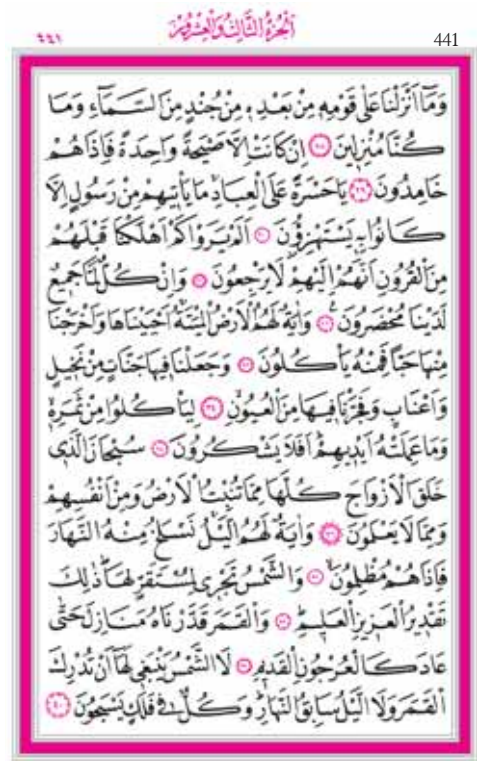 ٤٤١ اَلْجُزْءُ الثَّالِثُ وَالْعِشْرُونَ 441
وَمَٓا اَنْزَلْنَا عَلٰى قَوْمِهٖ مِنْ بَعْدِهٖ مِنْ جُنْدٍ مِنَ السَّمَٓاءِ وَمَا
كُنَّا مُنْزِلٖينَ ﴿٢٨﴾ اِنْ كَانَتْ اِلَّا صَيْحَةً وَاحِدَةً فَاِذَا هُمْ
خَامِدُونَ ﴿٢٩﴾ يَا حَسْرَةً عَلَى الْعِبَادِۚ مَا يَأْتٖيهِمْ مِنْ رَسُولٍ اِلَّا
كَانُوا بِهٖ يَسْتَهْزِؤُ۫نَ ﴿٣٠﴾ اَلَمْ يَرَوْا كَمْ اَهْلَكْنَا قَبْلَهُمْ
مِنَ الْقُرُونِ اَنَّهُمْ اِلَيْهِمْ لَا يَرْجِعُونَ ﴿٣١﴾ وَاِنْ كُلٌّ لَمَّا جَمٖيعٌ
لَدَيْنَا مُحْضَرُونَ۟ ﴿٣٢﴾ وَاٰيَةٌ لَهُمُ الْاَرْضُ الْمَيْتَةُۚ اَحْيَيْنَاهَا وَاَخْرَجْنَا
مِنْهَا حَبًّا فَمِنْهُ يَأْكُلُونَ ﴿٣٣﴾ وَجَعَلْنَا فٖيهَا جَنَّاتٍ مِنْ نَخٖيلٍ
وَاَعْنَابٍ وَفَجَّرْنَا فٖيهَا مِنَ الْعُيُونِۙ ﴿٣٤﴾ لِيَأْكُلُوا مِنْ ثَمَرِهٖۙ
وَمَا عَمِلَتْهُ اَيْدٖيهِمْۜ اَفَلَا يَشْكُرُونَ ﴿٣٥﴾ سُبْحَانَ الَّذٖي
خَلَقَ الْاَزْوَاجَ كُلَّهَا مِمَّا تُنْبِتُ الْاَرْضُ وَمِنْ اَنْفُسِهِمْ
وَمِمَّا لَا يَعْلَمُونَ ﴿٣٦﴾ وَاٰيَةٌ لَهُمُ الَّيْلُۚ نَسْلَخُ مِنْهُ النَّهَارَ
فَاِذَا هُمْ مُظْلِمُونَۙ ﴿٣٧﴾ وَالشَّمْسُ تَجْرٖي لِمُسْتَقَرٍّ لَهَاۜ ذٰلِكَ
تَقْدٖيرُ الْعَزٖيزِ الْعَلٖيمِۜ ﴿٣٨﴾ وَالْقَمَرَ قَدَّرْنَاهُ مَنَازِلَ حَتّٰى
عَادَ كَالْعُرْجُونِ الْقَدٖيمِ ﴿٣٩﴾ لَا الشَّمْسُ يَنْبَغٖي لَهَٓا اَنْ تُدْرِكَ
الْقَمَرَ وَلَا الَّيْلُ سَابِقُ النَّهَارِۜ وَكُلٌّ فٖي فَلَكٍ يَسْبَحُونَ ﴿٤٠﴾